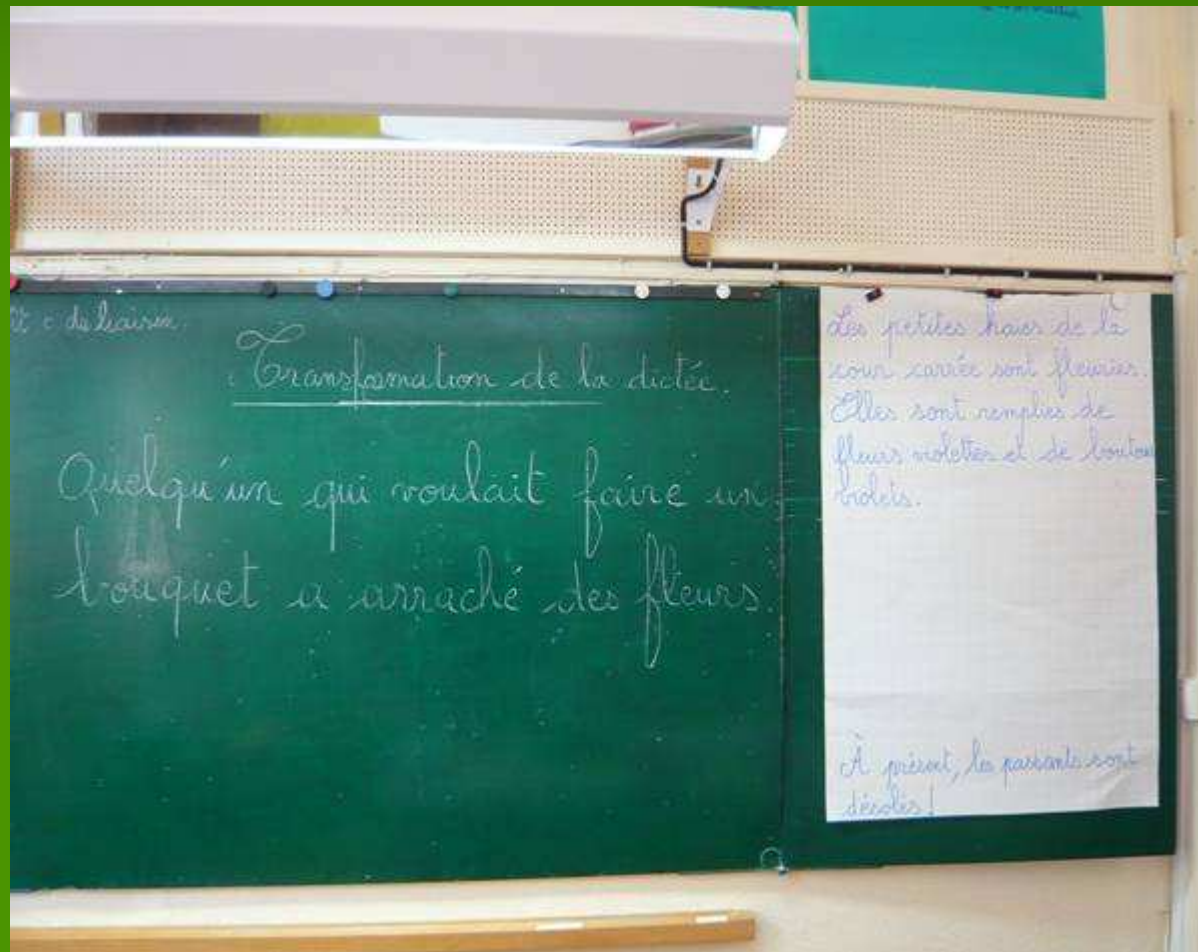 de liaison.
Transformation de la dictée.
Quelqu'un qui voulait faire un
bouquet a arraché des fleurs.
Les petites haies de la
cour carrée sont fleuries.
Elles sont remplies de
fleurs violettes et de boutons
violets.
À présent, les passants sont
désolés!